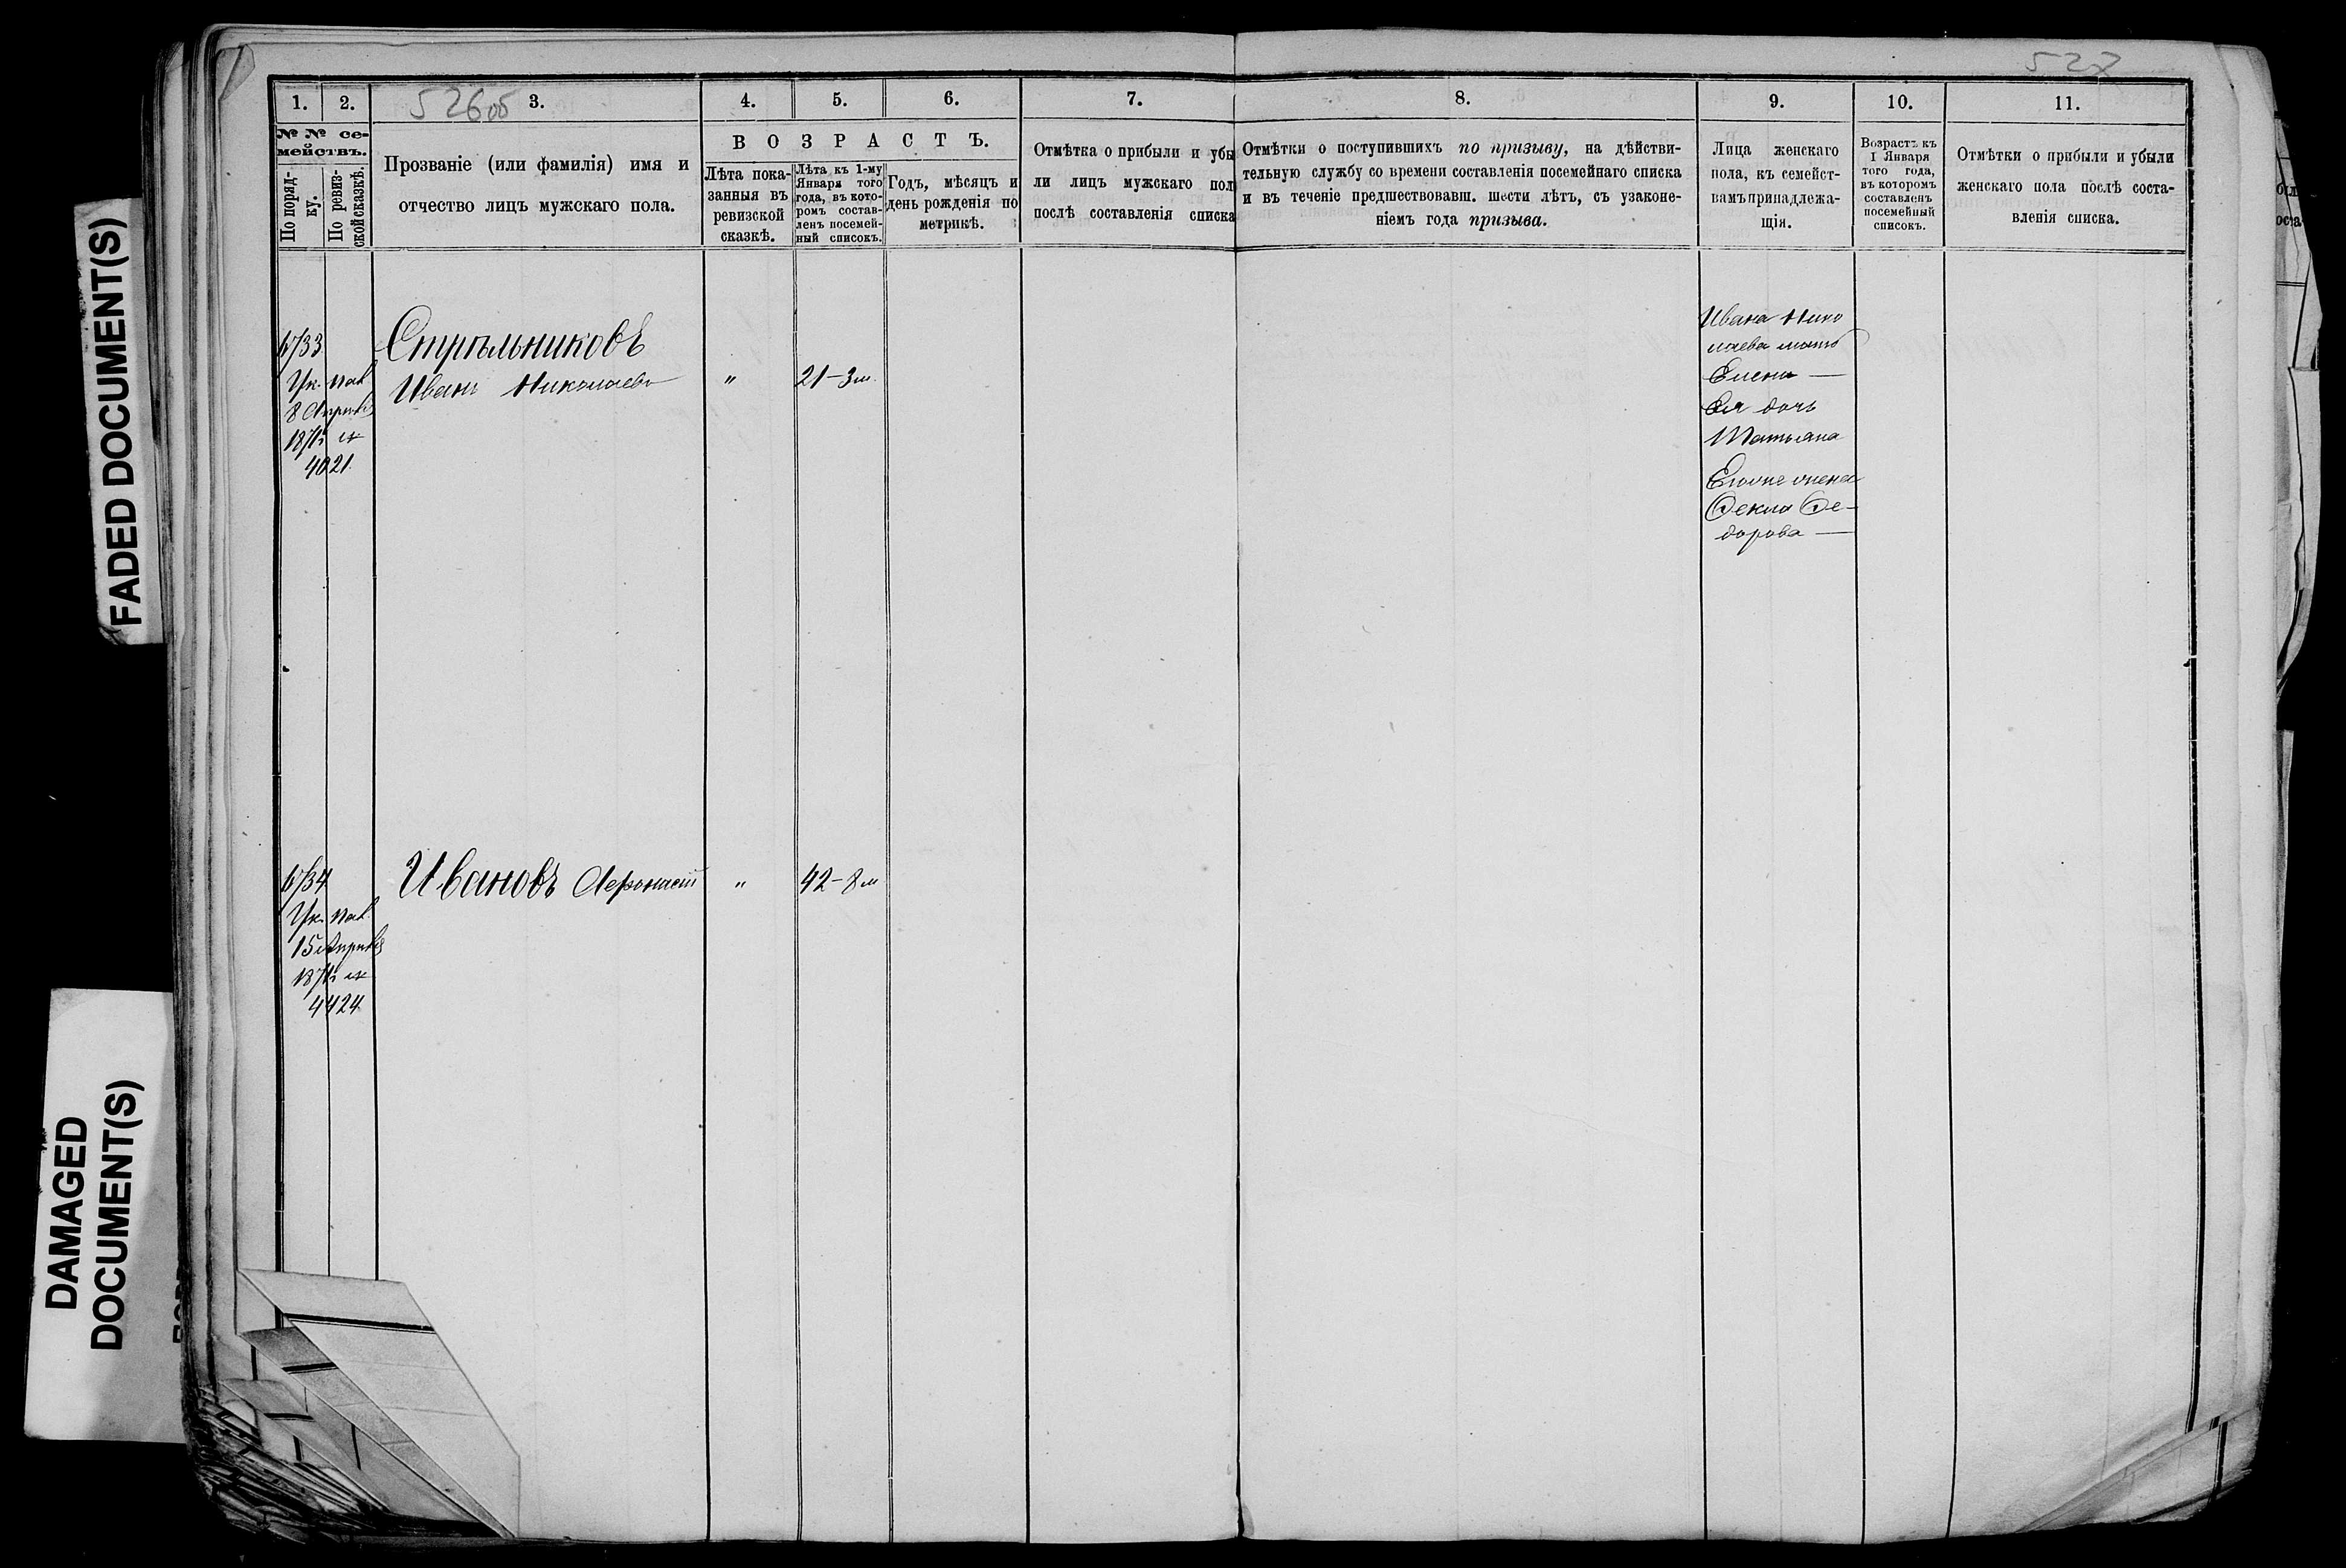 527
1.
2.
526об
3.
4.
5.
6.
7.
8.
9.
10.
11.
№ № се-
мействъ.
По поряд-
ку.
По ревиз-
ской сказкѣ.
Прозваніе (или фамилія) имя и
отчество лицъ мужскаго пола.
ВОЗРАСТЪ.
Лѣта пока-
занныя въ
ревизской
сказкѣ.
Лѣта къ 1-му
Января того
года, въ кото-
ромъ состав-
ленъ посемей-
ный списокъ.
Годъ, мѣсяцъ и
день рожденія по
метрикѣ.
Отмѣтка о прибыли и убы
ли лицъ мужскаго пол
послѣ составленія списка
Отмѣтки о поступившихъ по призыву, на дѣйстви-
тельную службу со времени составленія посемейнаго списка
и въ теченіе предшествовавш. шести лѣтъ, съ узаконе-
ніемъ года призыва.
Лица женскаго
пола, къ семейст-
вамъ принадлежа-
щія.
Возрастъ къ
1 Января
того года,
въ которомъ
составленъ
посемейный
списокъ.
Отмѣтки о прибыли и убыли
женскаго пола послѣ соста-
вленія списка.
Стрѣльниковъ
Иванъ Николаевъ
"
21-3м.
Ук. пал
8 Апрѣля
4021.
Ивана Нико
лаева мать
Елена —
Ея дочь
Татьяна
Его же жена
Фекла Фе-
дорова —
Ивановъ Афонасій
"
42-8м
Ук. пал.
15 Апрѣля
4424
FADED DOCUMENT(S)
DAMAGED
DOCUMENT(S)